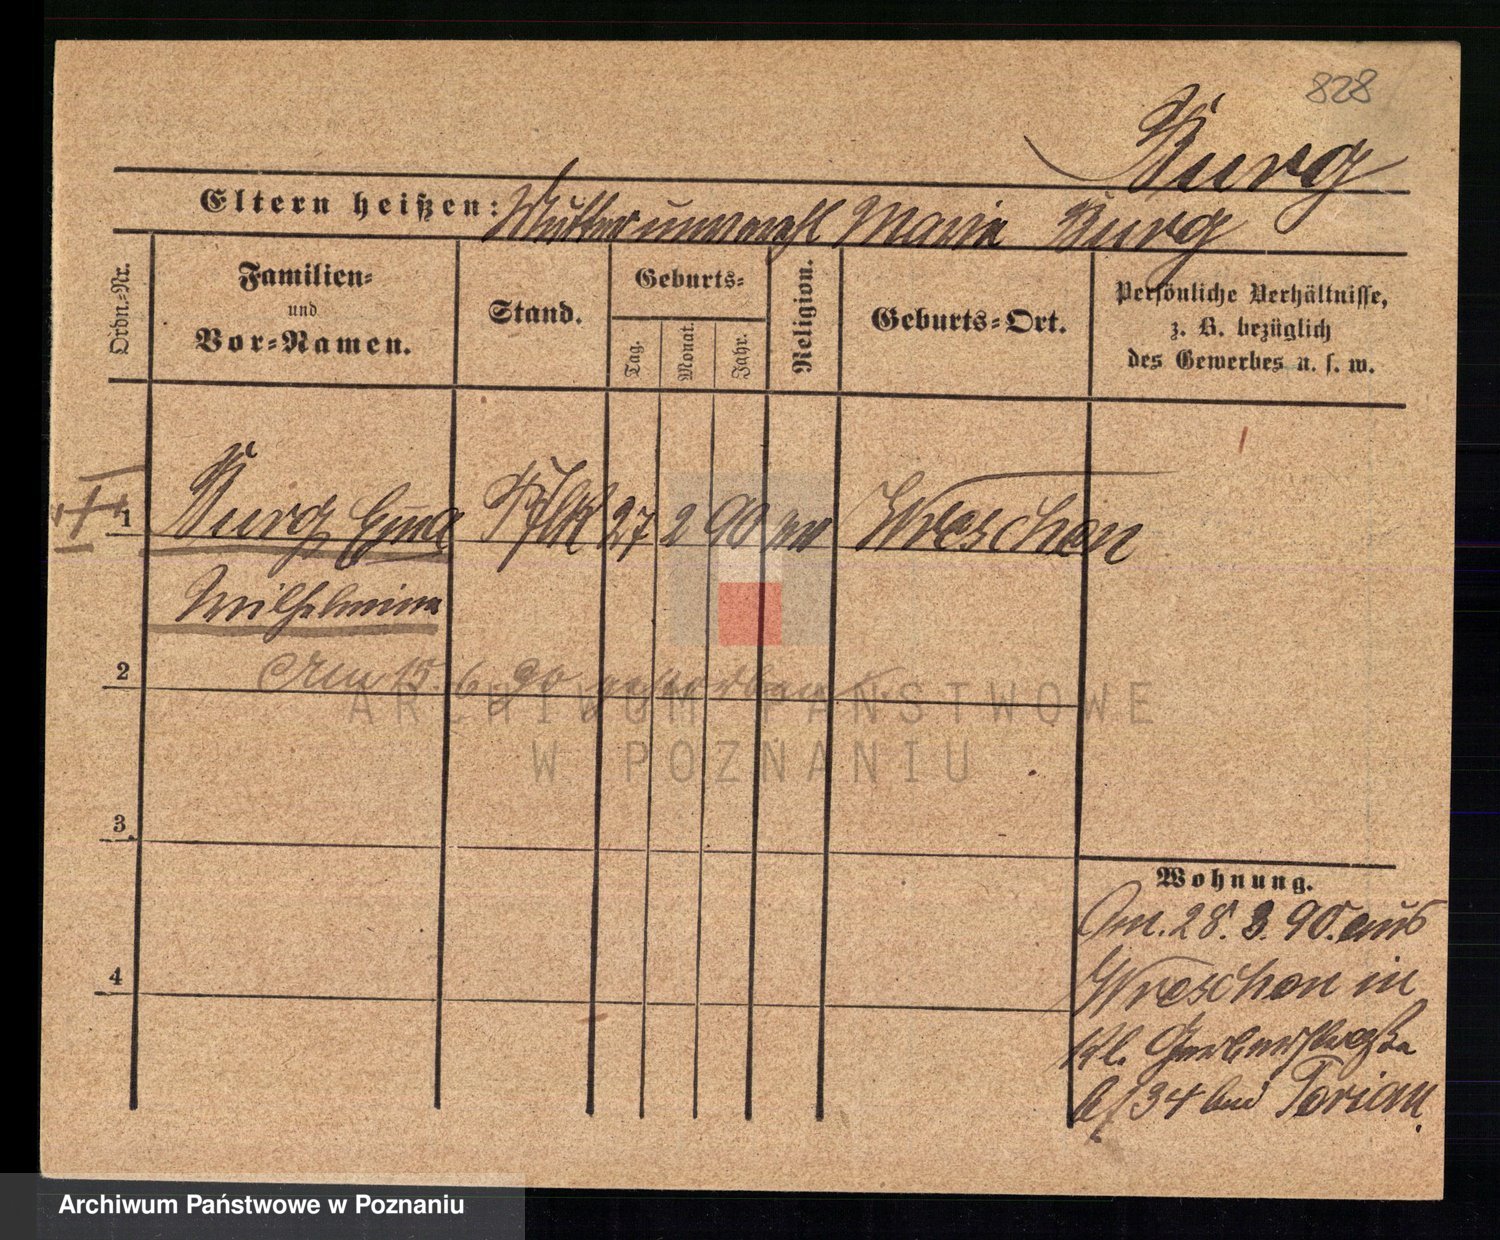 828
Burg
Eltern heißen: Mutter unverehl Marie Burg
Ordn.-Nr.
Familien-
und
Vor-Namen.
Stand.
Geburts-
Tag.
Monat.
Jahr.
Religion.
Geburts-Ort.
Persönliche Verhältnisse,
z. B. bezüglich
des Gewerbes u. s. w.
1 Burg Emma 27 2 90 Wreschen
Wilhelmine
2 Am 15. 6. 90 gestorben
3
4
Wohnung.
Am. 28. 3. 90. aus
Wreschen in
Kl. Gerberstraße
34 bei Torian
ARCHIWUM PAŃSTWOWE
W POZNANIU
Archiwum Państwowe w Poznaniu